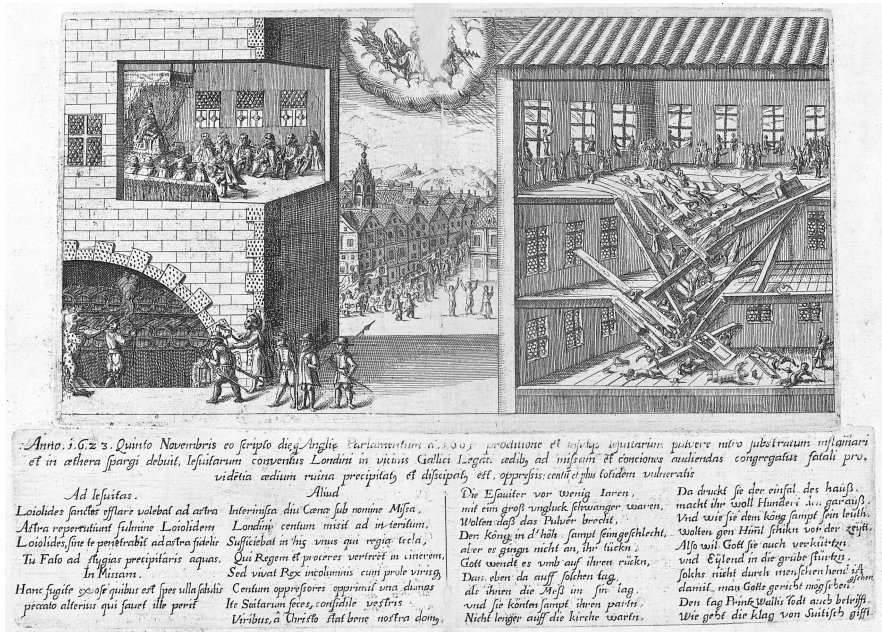 Anno. 1.6.2.3. Quinto Novembris eo scripto die Angliæ Parlamentum proditione et Iesuitarum pulvere nitro substratum inflamari
et in æthera spargi debuit, Iesuitarum conventus Londini in vicinis Gallici Legati ædibus ad missam et conciones audiendas congregatus fatali pro,
videtia ædium ruina precipitatus et dissipatus est, oppressis centū et plus totidem vulneratis
Ad Iesuitas.
Loiolides sanctos efflare volebat ad astra
Astra repercutiunt fulmine Loiolidem
Loiolides, sine te penetrabit ad astra fidelis
Tu Fato ad stygias precipitaris aquas.
In Missam.
Hanc fugite exose quibus est spes ulla salutis
peccato alterius qui favet ille perit
Aliud
Intermissa diu Cænæ sub nomine Missa,
Londini centum misit ad interitum,
Sufficiebat in his unus qui regia tecta,
Qui Regem et proceres verteret in cinerem,
Sed vivat Rex incolumis cum prole virisq;
Centum oppressores opprimit una domus
Ite Suitarum feces, confidite vestris
Viribus, a Christo stat bene nostra domus
Die Esauiter vor wenig Iaren,
mit eim groß vngluck schwanger waren,
Wolten daß das Pulver brecht,
Den König in d'höh, sampt seim geschlecht,
aber es gingn nicht an, ihr tückn,
Gott wendt es vmb auf ihren rückn,
Dan eben da auff solchen tag,
als ihnen die Meß im sin lag,
vnd sie köntn sampt ihren partn,
Nicht lenger auff die kirche wartn,
Da druckt sie der einfal des hauß,
macht ihr woll Hundert den garauß,
Vnd wie sie dem köng sampt sein leuth,
Wolten gen Himl schikn vor der zeitt,
Also wil Gott sie auch verkürtzn
vnd Eylend in die grübe stürtzn.
Solchs nicht durch menschen hend
damit man Gotts gericht mög sehen
Den tag Printz Wallis Todt auch betrifft,
Wie geht die klag von Suitisch gifft.